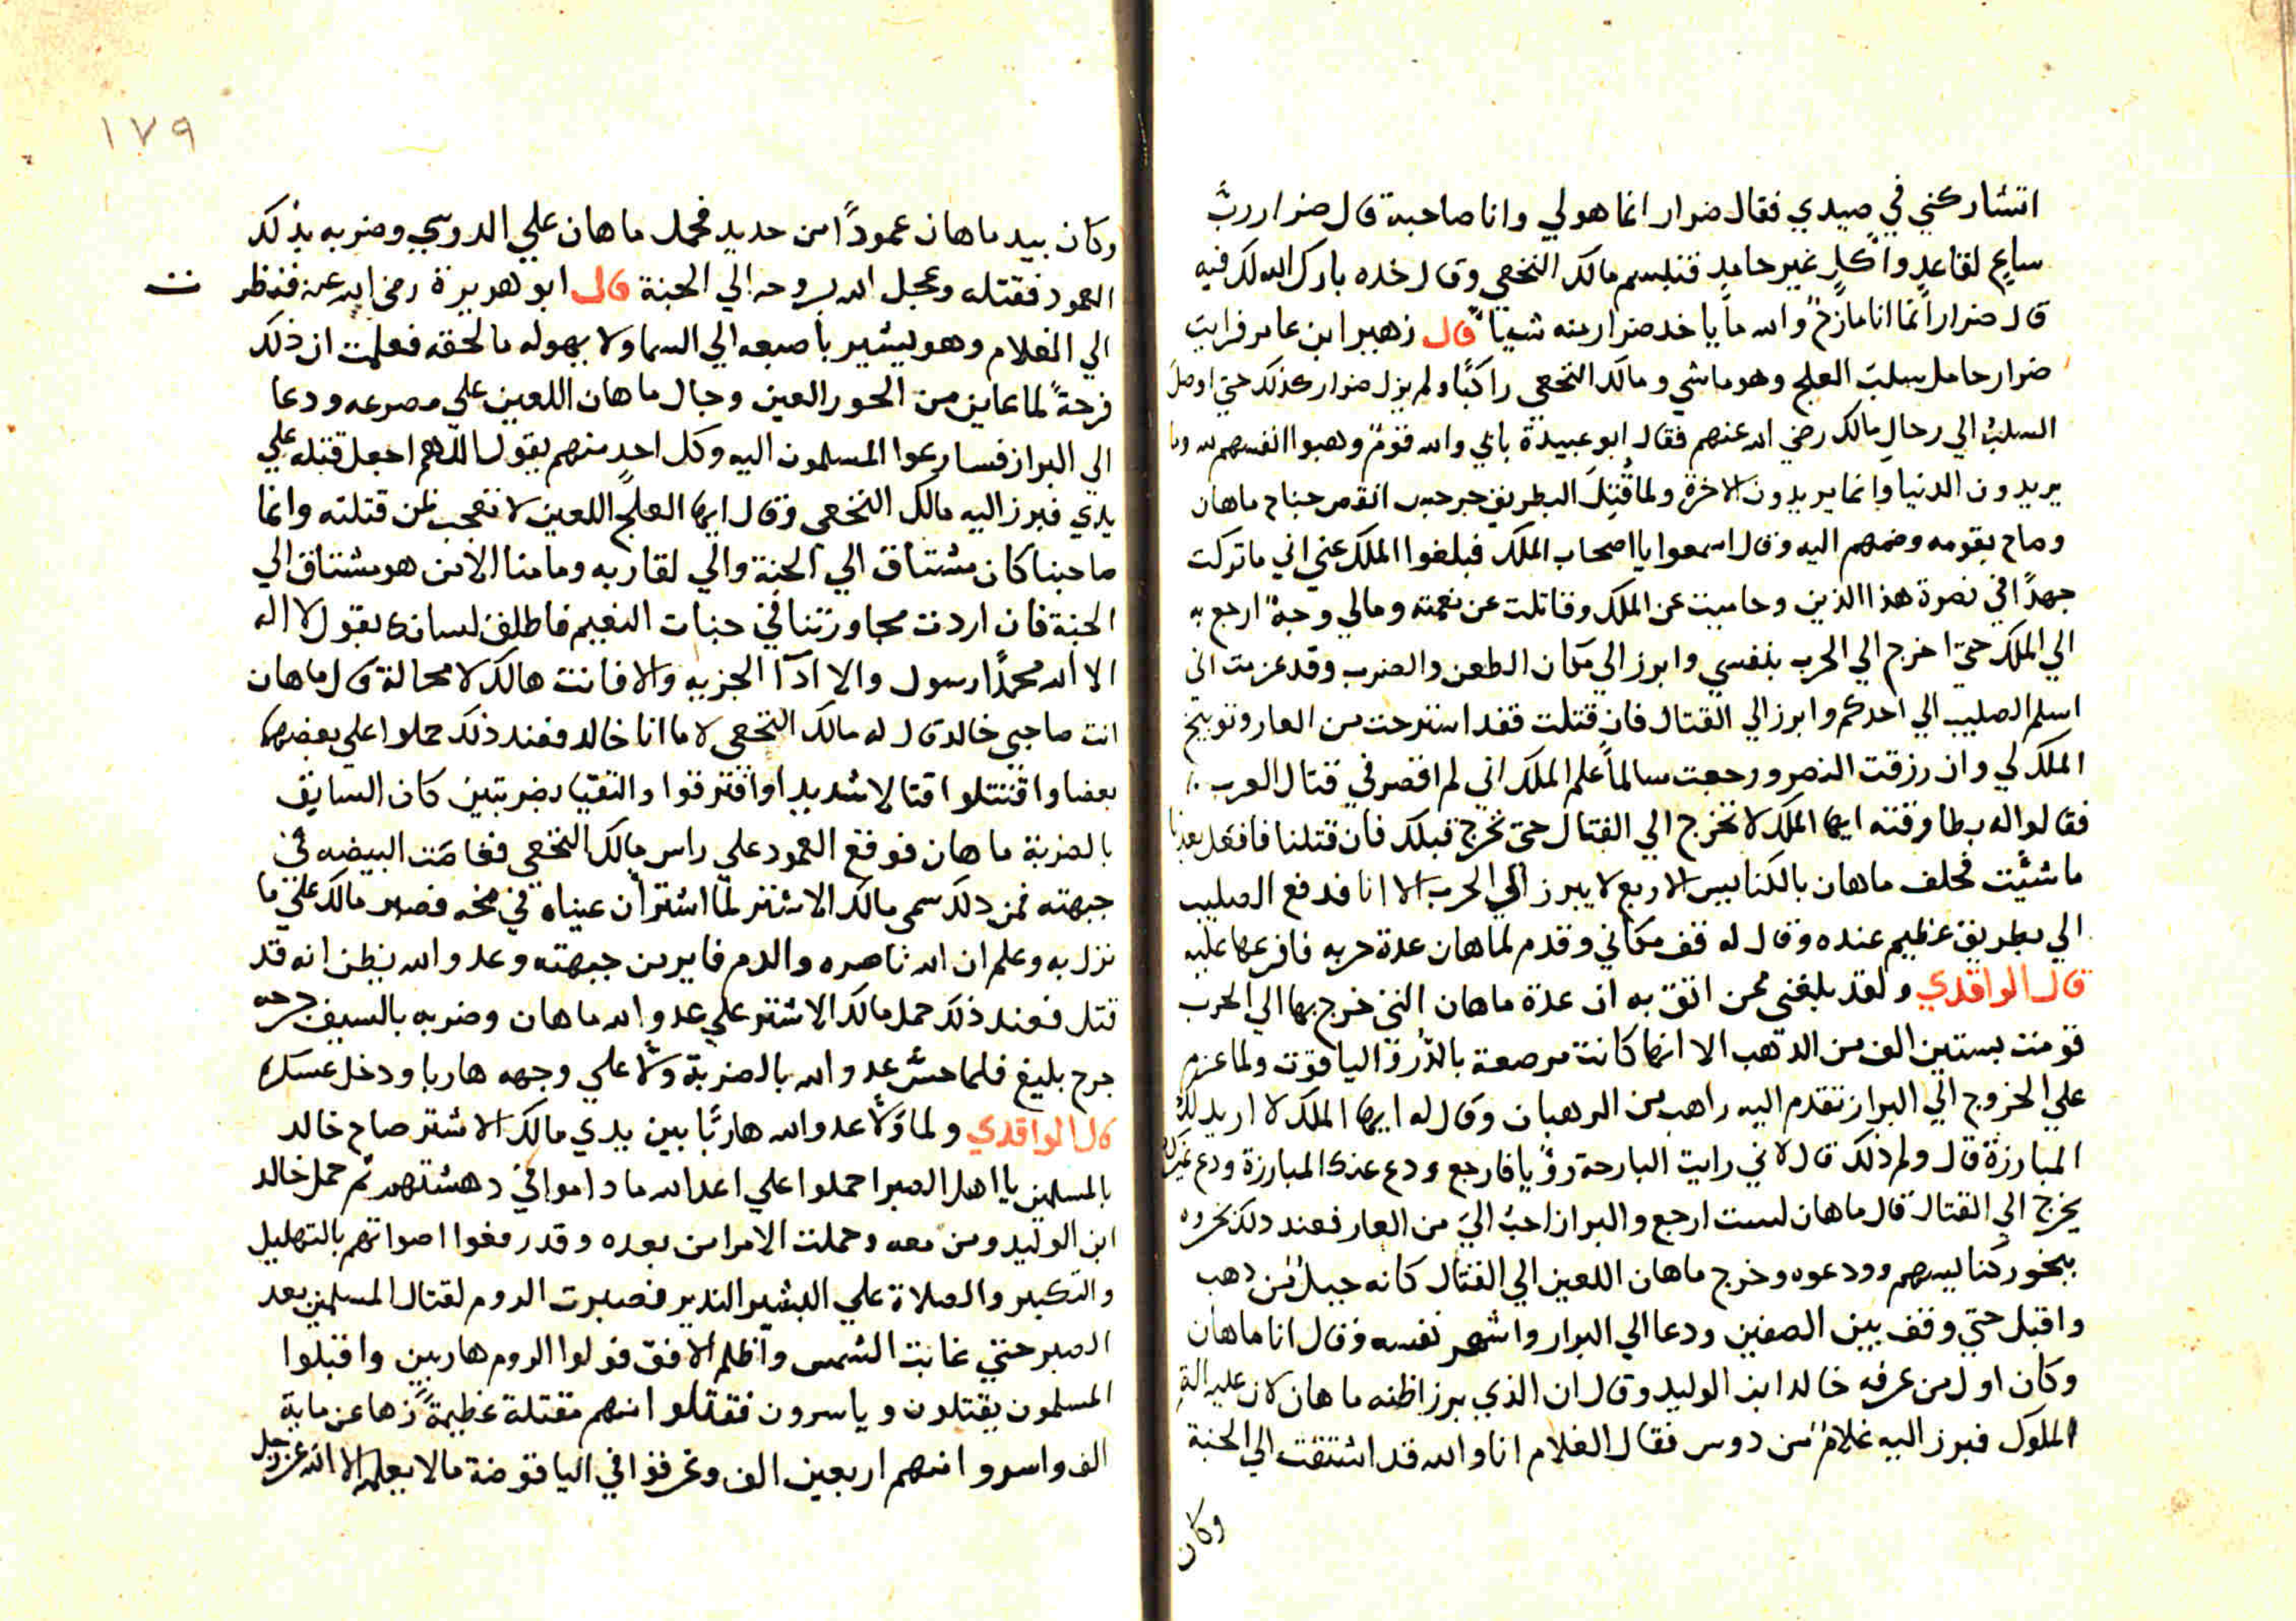 اتشاركني في صيدي فقال ضرار انما هو لي وانا صاحبه قال ضرار ربّ
ساعٍ لقاعدٍ واٰكلٍ غير حامدٍ فتبسم مالك النخعي وقال خذه بارك الله لك فيه
قال ضرار انما انا مازحٌ والله ما ياخد ضرار منه شيا قال زهير ابن عامر فرايت
ضرار حامل سلب العلج وهو ماشي ومالك النخعي راكبًا ولم يزل ضرار كذلك حتي اوصل
السلب الي رحال مالك رضي الله عنهم فقال ابو عبيدة بابي والله قومٌ وهبوا انفسهم لله وما
يريدون الدنيا وانما يريدون الاخرة ولما قُتِلَ البطريق جرجير انقص جناح ماهان
وصاح بقومه وضمهم اليه وقال اسمعوا يا اصحاب الملك فبلغوا الملك عني اني ما تركت
جهدًا في نصرة هذا الدين وحاميت عن الملك وقاتلت عن نعمته ومالي وجهٌ ارجع به
الي الملك حتي اخرج الي الحرب بنفسي وابرز الي مكان الطعن والضرب وقد عزمت اني
اسلم الصليب الي احدكم وابرز الي القتال فان قتلت فقد استرحت من العار وتوبيخ
الملك لي وان رزقت النصر ورجعت سالماً علم الملك اني لم اقصر في قتال العرب
فقالوا له بطارقته ايها الملك لا تخرج الي القتال حتي نخرج قبلك فان قتلنا فافعل بعدنا
ما شئت فحلف ماهان بالكنايس الاربع لا يبرز الي الحرب الا انا فدفع الصليب
الي بطريق عظيم عنده وقال له قف مكاني وقدم لماهان عدة حربه فافرغها عليه
قال الواقدي ولقد بلغني ممن اتق به ان عدة ماهان التي خرج بها الي الحرب
قومت بستين الف من الدهب الا انها كانت مرصعة بالدّر والياقوت ولما عزم
علي الخروج الي البراز تقدم اليه راهب من الرهبان وقال له ايها الملك لا اريد لك
المبارزة قال ولم ذلك قال لاني رايت البارحة رؤيا فارجع ودع عنك المبارزة ودع غيرك
يخرج الي القتال قال ماهان لست ارجع والبراز احبُّ اليَّ من العار فعند دلك بخروه
ببخور كنايسهم وودعوه وخرج ماهان اللعين الي القتال كانه جبلٌ من دهب
واقبل حتي وقف بين الصفين ودعا الي البراز واشهر نفسه وقال انا ماهان
وكان اول من عرفه خالد ابن الوليد وقال ان الذي برز اظنه ماهان لان عليه الة
الملوك فبرز اليه غلامٌ من دوس فقال الغلام انا والله قد اشتقت الي الجنة
وكان
١٧٩
وكان بيد ماهان عموداً من حديد فحمل ماهان علي الدوسي وضربه بذلك
العمود فقتله وعجل الله بروحه الي الجنة قال ابو هريرة رضي الله عنه فنظرت
الي الغلام وهو يشير باصبعه الي السما ولا يهوله ما لحقه فعلمت ان ذلك
فرحةً لما عاين من الحور العين وجال ماهان اللعين علي مصرعه ودعا
الي البراز فسارعوا المسلمون اليه وكل احدٍ منهم يقول اللهم اجعل قتله علي
يدي فبرز اليه مالك النخعي وقال ايها العلج اللعين لا تعجب لمن قتلته وانما
صاحبنا كان مشتاق الي الجنة والي لقا ربه وما منا الا من هو مشتاق الي
الجنة فان اردت مجاورتنا في جنات النعيم فاطلق لسانك بقول لا اله
الا الله محمدًا رسول والا ادّآ الجزيه والا فانت هالك لا محالة قال ماهان
انت صاحبي خالد قال له مالك النخعي لا ما انا خالد فعند ذلك حملوا علي بعضهما
بعضا واقتتلوا قتالا شديدا وافترقوا والتقيا بضربتين كان السابق
بالضربة ماهان فوقع العمود علي راس مالك النخعي فغاصَت البيضه في
جبهته فمن دلك سمي مالك الاشتر لما اشتران عيناه في مخه فصبر مالك علي ما
نزل به وعلم ان الله ناصره والدم فاير من جبهته وعدو الله يظن انه قد
قتل فعند ذلك حمل مالك الاشتر علي عدو الله ماهان وضربه بالسيف جرحه
جرح بليغ فلما حسَّ عدو الله بالضربة ولّا علي وجهه هاربا ودخل عسكره
قال الواقدي ولما ولّا عدو الله هاربًا بين يدي مالك الاشتر صاح خالد
بالمسلمين يا اهل الصبر احملوا علي اعدا الله ما داموا في دهشتهم ثم حمل خالد
ابن الوليد ومن معه وحملت الامرا من بعده وقد رفعوا اصواتهم بالتهليل
والتكبير والصلاة علي البشير الندير فصبرت الروم لقتال المسلمين بعد
الصبر حتي غابت الشمس واظلم الافق فولوا الروم هاربين واقبلوا
المسلمون يقتلون وياسرون فقتلوا منهم مقتلة عظيمةً زها عن ماية
الف واسروا منهم اربعين الف وغرقوا في الياقوضة ما لا يعلمه الا الله عز وجل